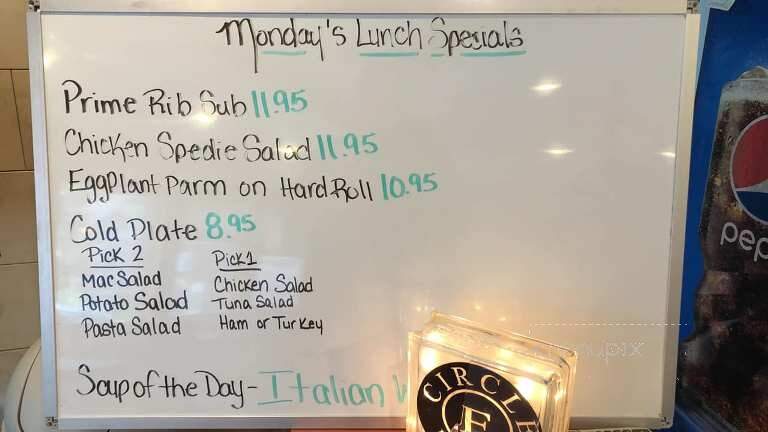 Monday's Lunch Specials
Prime Rib Sub 11.95
Chicken Spedie Salad 11.95
Eggplant Parm on Hard Roll 10.95
Cold Plate 8.95
Pick 2 Pick 1
Mac Salad Chicken Salad
Potato Salad Tuna Salad
Pasta Salad Ham or Turkey
Soup of the Day - Italian W
CIRCLE
E
pep